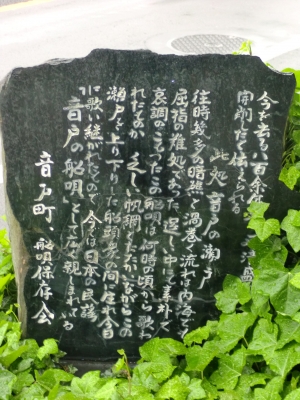 今を去る八百余年
開削したと伝えられる
此処「音戸の瀬戸
往時幾多の暗礁と渦巻く流れは内海でも
屈指の難処であった 逞しい中にも素朴で
哀調のこもったこの船唄は何時の頃から歌わ
れたものか 久しい
瀬戸を上り下りした船頭衆の間に生れ今日
に歌い継がれたもので 今では日本の民謡
「音戸の船唄」として広く親しまれている
音戸町、船唄保存会